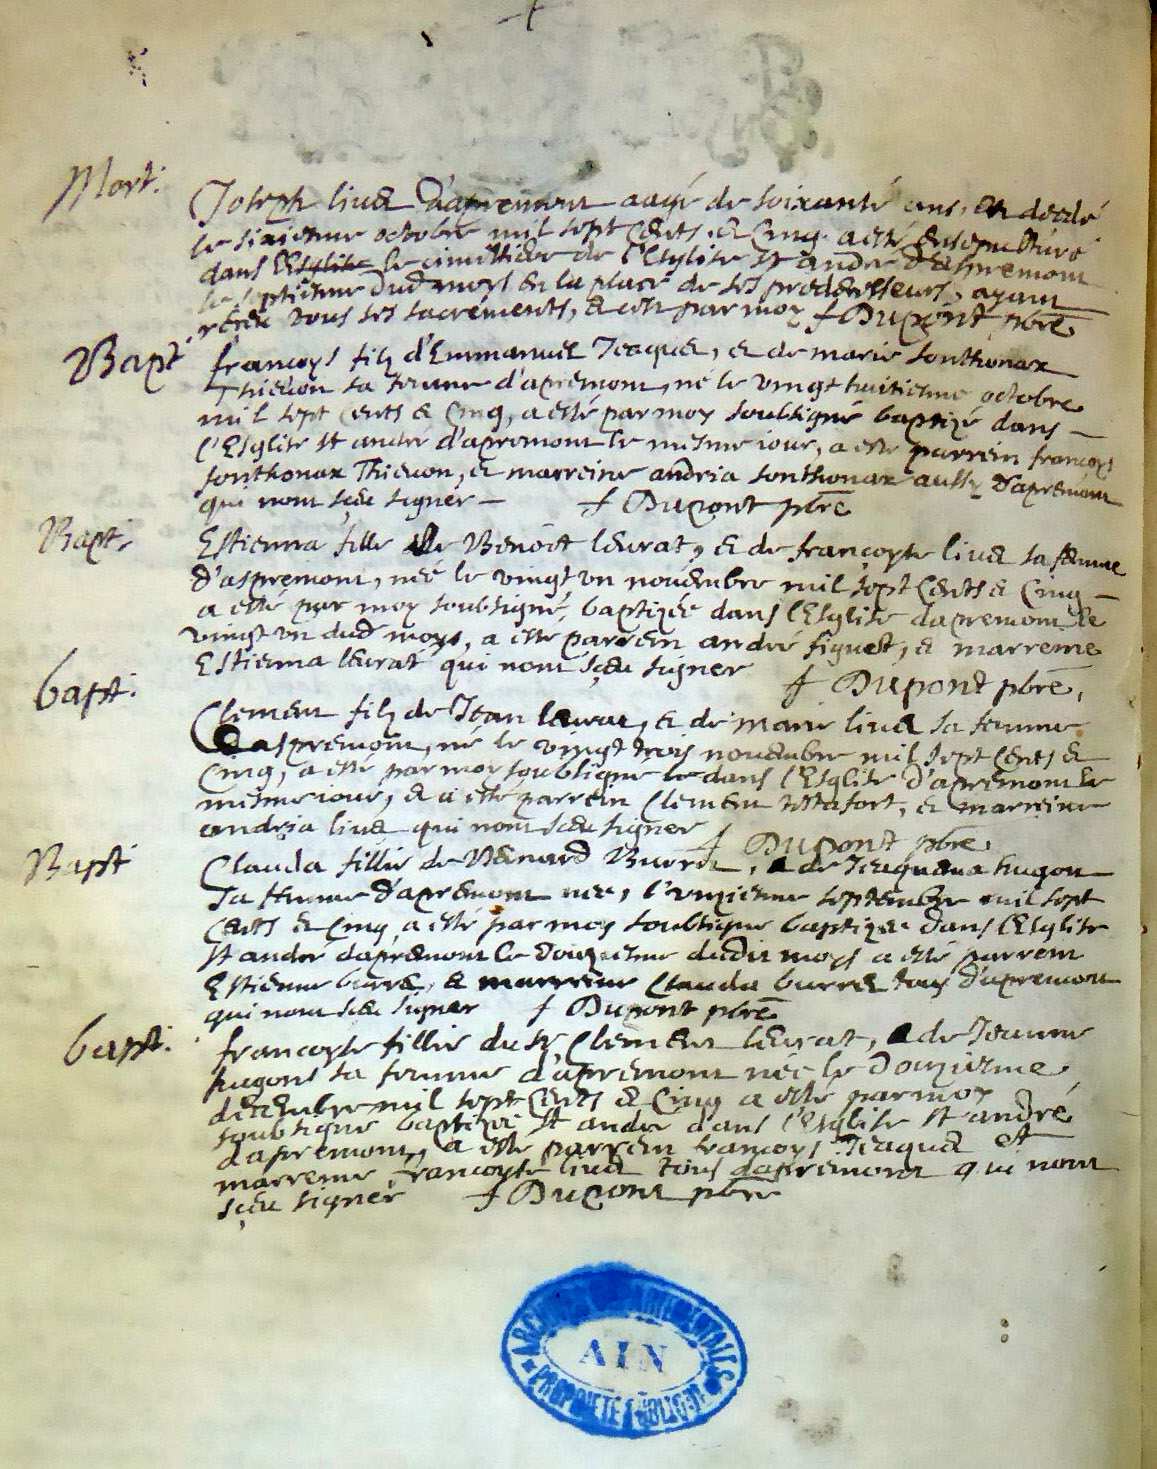 Mort.
Joseph livet d'apremont aagé de soixante ans, est decedé
le sixiesme octobre mil sept Cents et Cinq a esté ensepulturé
dans l'Esglise le cimistiere de l'Esglise st andré d'aspremont
le septiesme dud moys en la place de ses predecesseurs, ayant
receu tous ses sacréments, par moy Dupont pbre
Bapt
françoys filz d'Emmanuel Jeaquet, et de marie sonthonax
Thieuon sa femme d'apremont, né le vingt huitiesme octobre
mil sept Cents et Cinq, a esté par moy soubsigné baptizé dans
l'Esglise st andré d'apremont le mesme iour, a esté parrein françoys
sonthonax Thieuon, et marreine andria sonthonax aussy d'apremont
qui nont sçeu signer Dupont pbre
Bapt.
Estienna fille de Benoitt leurat, et de françoyse livet sa femme
d'aspremont, née le vingt vn nouembre mil sept Cents et Cinq
a esté par moy soubsigné, baptizée dans l'Esglise dapremont le
vingt vn dud moys, a esté parrein andré figuet, et marreine
Estienna leurat qui nont sçeu signer
Dupont pbre,
bapt.
Clement filz de Jean leurat, et de marie livet sa femme
daspremont, né le vingt trois nouembre mil sept Cents et
Cinq, a esté par moy soubsigné dans l'Esglise d'apremont le
mesme iour, et a esté parrein Clement, et marreine
andria livet qui nont sceu signer
Dupont pbre.
Bapt
Clauda fillie de Bernard Burret, et de Jeaquema hugon
sa femme d'apremont née, l'onzieme septembre mil sept
Cents et Cinq a esté par moy soubsigné baptizée dans l'Esglise
st andré dapremont le douziesme dudit moys a esté parrein
Estienne burret, et marreine Clauda burret tous d'apremont
qui nont sceu signer Dupont pbre
bapt.
francoyse fillie du sr, Clement leurat, et de Jeanne
hugons sa femme dapremont née le Douzieme
décembre mil sept Cents et Cinq a esté par moy
soubsigné baptizé st andre dans l'Esglise st andré
dapremont, a esté parrein francoys Jeaquet et
marreine francoyse livet tous dapremont qui nont
sçeu signer Dupont pbre
ARCHIVES DÉPARTEMENTALES
AIN
PROPRIÉTÉ PUBLIQUE